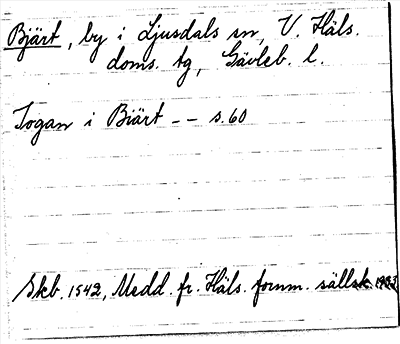 Bjärt, by i Ljusdals sn, V. Häls.
doms. tg, Gävleb. l.
Togan i Biärt -- s.60
Skb. 1542, Medd. fr. Häls. fornm. sällsk.